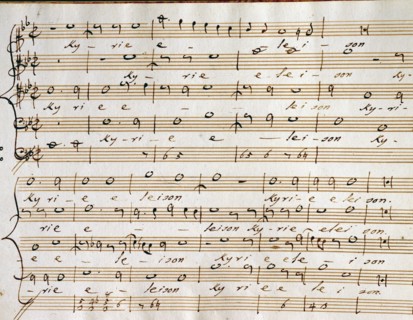 Ky - rie e - lei - son
Ky - rie e lei - son
Kyrie e - lei son Kyri-
Ky - ri - e e - lei - son Ky-
7 6 5 6 5 6 7 6 4
Kyri - e e leison Kyri - e e lei son.
rie e - leison Ky - rie - elei son.
e e - le - ison Kyri e ele - i son
rie - e - leison Kyri e e le i son.